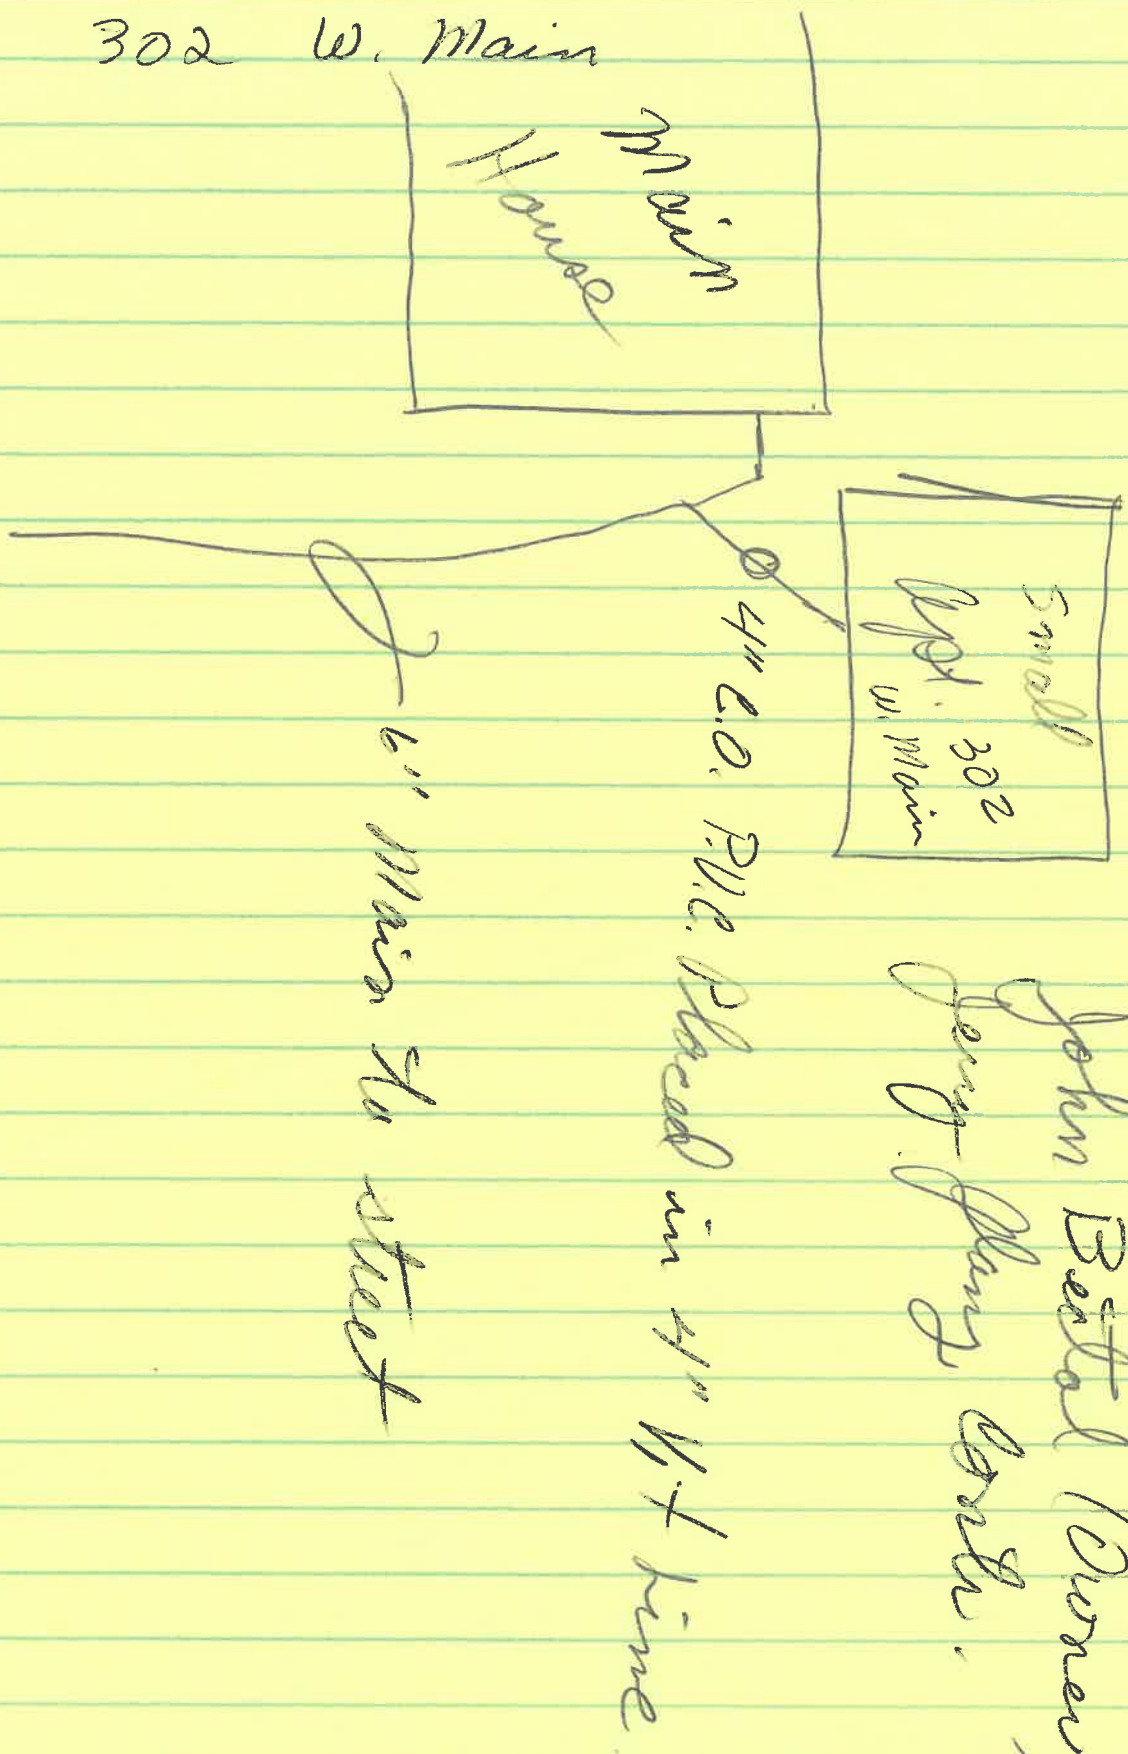 302 W. Main
Main
House
Small
Apt. 302
W. Main
John (Owner)
Jerry Const.
4" C.O. P.V.C. Placed in 4" Vit Line
6" Main to street